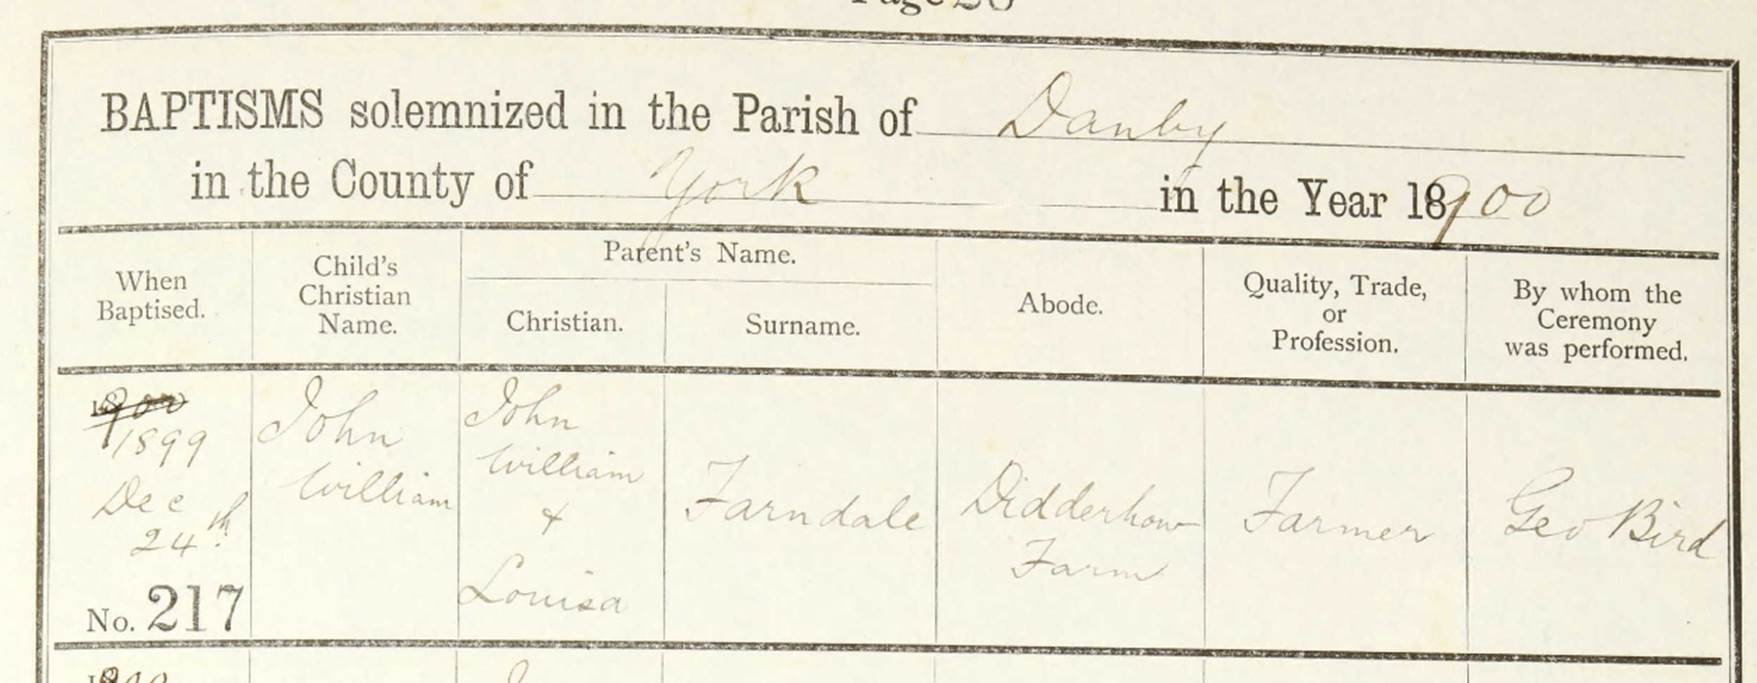 BAPTISMS solemnized in the Parish of Danby
in the County of York in the Year 18900
When Baptised.
Child's Christian Name.
Parent's Name.
Christian.
Surname.
Abode.
Quality, Trade, or Profession.
By whom the Ceremony was performed.
1899
Dec
24th
No. 217
John
William
John
William
&
Louisa
Farndale
Didderhow
Farm
Farmer
Geo Bird